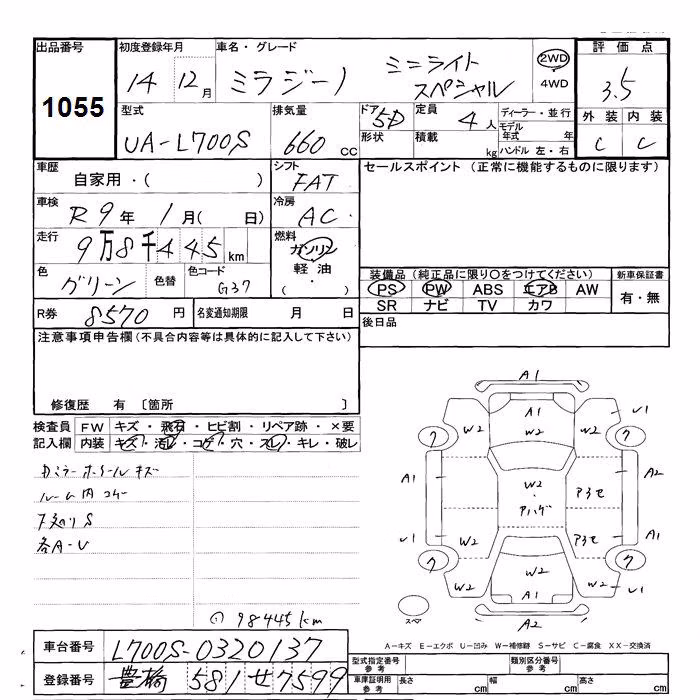 出品番号 初度登録年月 車名・グレード 評価点
1055 14 12月 ミラジーノ ミニライト スペシャル 2WD ・ 4WD 3.5
型式 排気量 ドア 5D 定員 4人 ディーラー・並行 外装 内装
UA-L700S 660 cc 形状 積載 kg モデル年式 年 ハンドル 左・右 C C
車歴 シフト セールスポイント (正常に機能するものに限ります)
自家用・( ) FAT
車検 冷房
R9年 1月( 日) AC
走行 燃料
9万8千445 km ガソリン
色 色替 色コード 軽油
グリーン G37 ( ・ )
装備品 (純正品に限り○をつけてください) 新車保証書
PS PW ABS エアB AW 有・無
SR ナビ TV カワ
R券 8570 円 名変通知期限 月 日 後日品
注意事項申告欄 (不具合内容等は具体的に記入して下さい)
修復歴 有 〔箇所 〕
検査員 FW キズ・飛石・ヒビ割・リペア跡・×要
記入欄 内装 キズ・汚レ・コゲ・穴・スレ・キレ・破レ
ルーム内
下廻りS
各A-U
98445km
A1
A1 W2 W2 W2 U1
ク ク
A1 W2 ・ アハゲ A2
U1 W2 W2 A1
ク W2 W2 W2 U1 ク
A1
A2
A-キズ E-エクボ U-凹み W-補修跡 S-サビ C-腐食 XX-交換済
車台番号 L700S-0320137
登録番号 豊橋 581 せ 7599
型式指定番号 参考 類別区分番号 参考
車庫証明用 参考 長さ cm 幅 cm 高さ cm